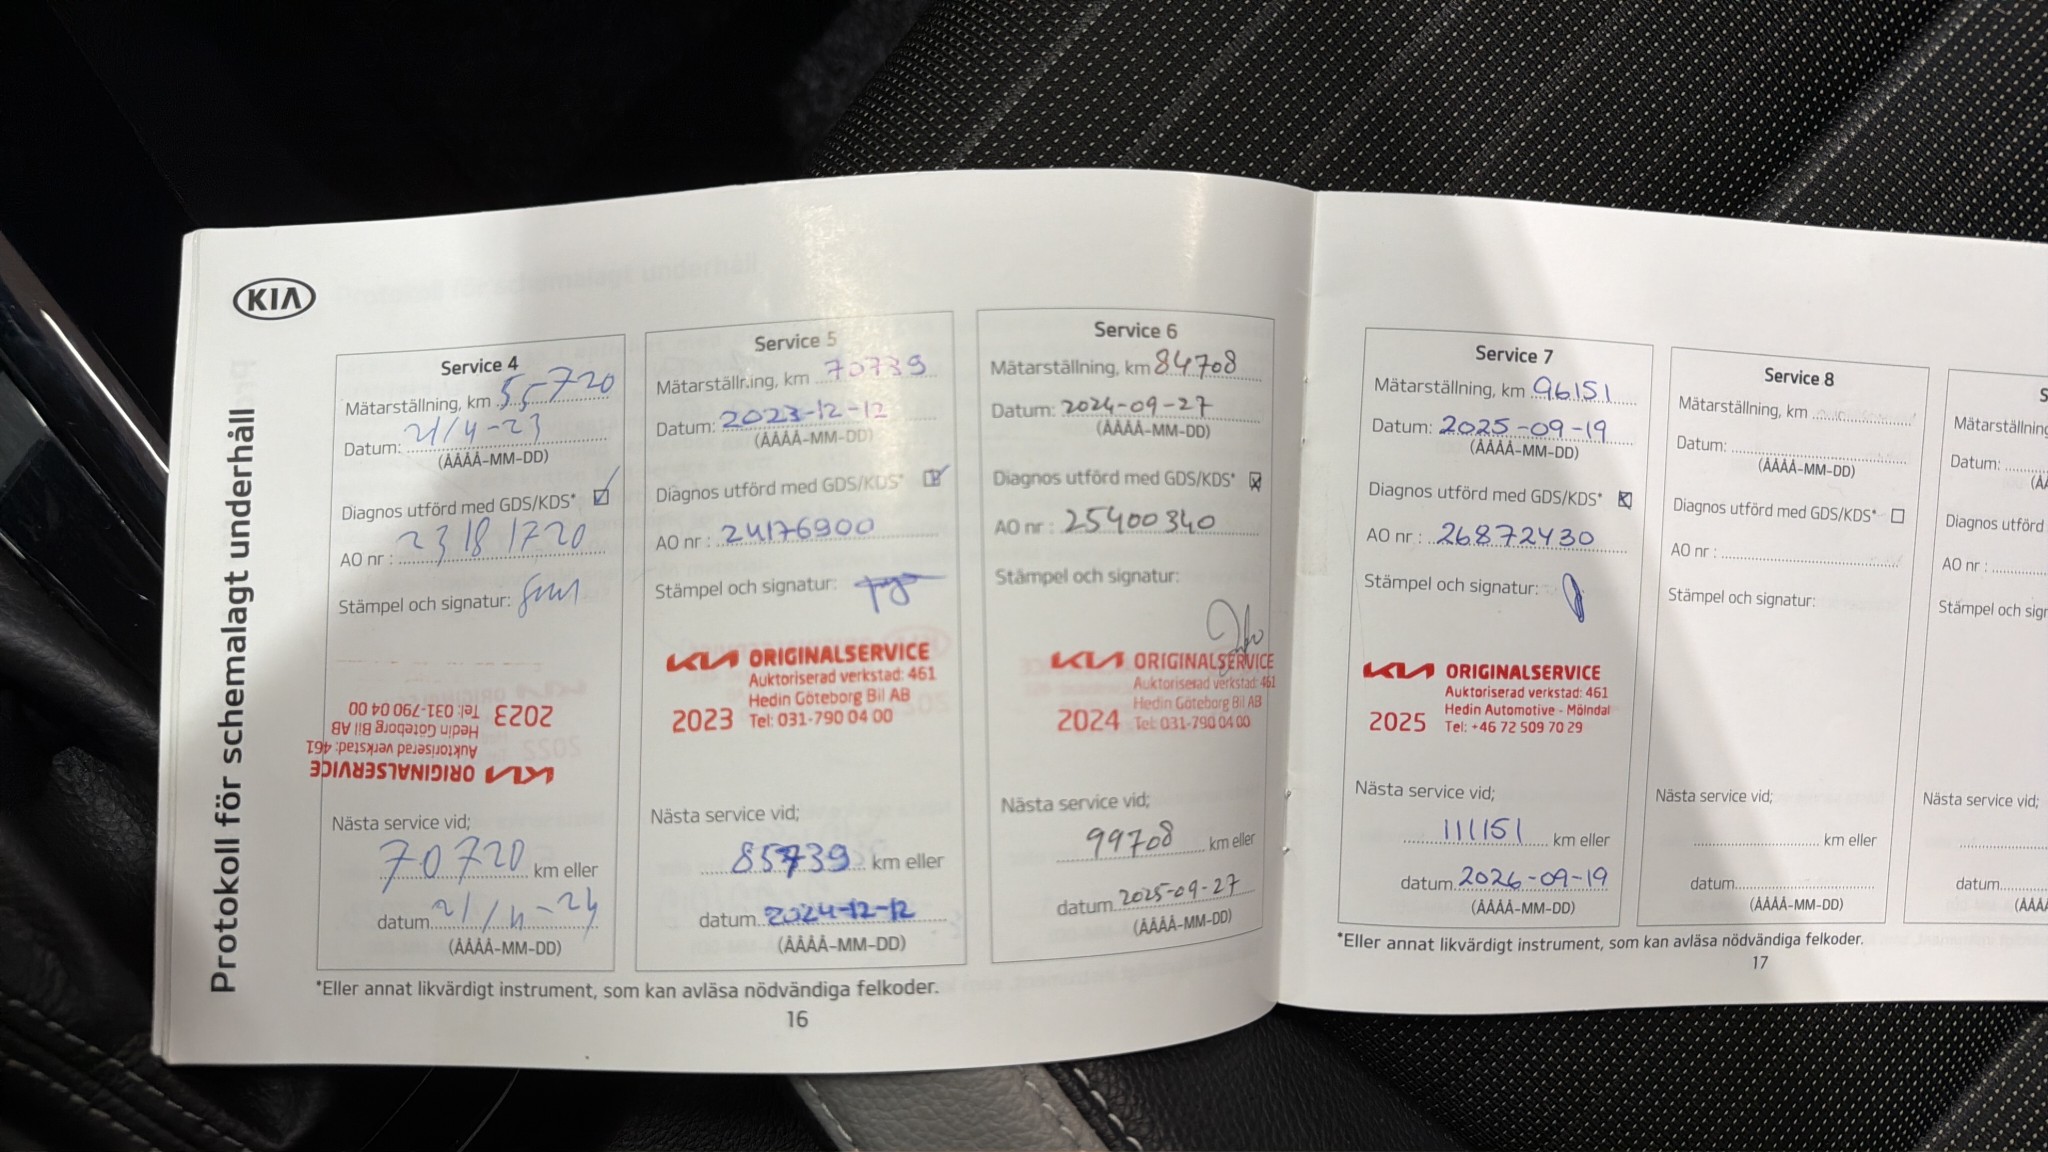 KIA
Protokoll för schemalagt underhåll
Service 4
Mätarställning, km 55720
Datum: 21/4-23
(ÅÅÅÅ-MM-DD)
Diagnos utförd med GDS/KDS*
AO nr : 23181720
Stämpel och signatur:
KIA ORIGINALSERVICE
Auktoriserad verkstad: 461
Hedin Göteborg Bil AB
2023 Tel: 031-790 04 00
Nästa service vid;
70720 km eller
datum 21/4-24
(ÅÅÅÅ-MM-DD)
Service 5
Mätarställning, km 70739
Datum: 2023-12-12
(ÅÅÅÅ-MM-DD)
Diagnos utförd med GDS/KDS*
AO nr : 24176900
Stämpel och signatur:
KIA ORIGINALSERVICE
Auktoriserad verkstad: 461
Hedin Göteborg Bil AB
2023 Tel: 031-790 04 00
Nästa service vid;
85739 km eller
datum 2024-12-12
(ÅÅÅÅ-MM-DD)
Service 6
Mätarställning, km 84708
Datum: 2024-09-27
(ÅÅÅÅ-MM-DD)
Diagnos utförd med GDS/KDS*
AO nr : 25400340
Stämpel och signatur:
KIA ORIGINALSERVICE
Auktoriserad verkstad: 461
Hedin Göteborg Bil AB
2024 Tel: 031-790 04 00
Nästa service vid;
99708 km eller
datum 2025-09-27
(ÅÅÅÅ-MM-DD)
*Eller annat likvärdigt instrument, som kan avläsa nödvändiga felkoder.
16
Service 7
Mätarställning, km 96151
Datum: 2025-09-19
(ÅÅÅÅ-MM-DD)
Diagnos utförd med GDS/KDS*
AO nr : 26872430
Stämpel och signatur:
KIA ORIGINALSERVICE
Auktoriserad verkstad: 461
Hedin Automotive - Mölndal
2025 Tel: +46 72 509 70 29
Nästa service vid;
111151 km eller
datum 2026-09-19
(ÅÅÅÅ-MM-DD)
Service 8
Mätarställning, km
Datum:
(ÅÅÅÅ-MM-DD)
Diagnos utförd med GDS/KDS*
AO nr :
Stämpel och signatur:
Nästa service vid;
km eller
datum
(ÅÅÅÅ-MM-DD)
Mätarställning
Datum:
Diagnos utförd
AO nr :
Stämpel och
Nästa service vid;
datum
*Eller annat likvärdigt instrument, som kan avläsa nödvändiga felkoder.
17